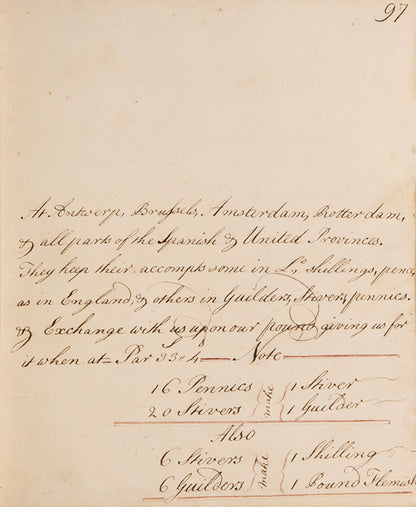 97
At Antwerp, Brussels, Amsterdam, Rotterdam,
& all parts of the Spanish & United Provinces.
They keep their accompts some in L, Shillings, pence
as in England, & others in Guilders, Stivers, pennics.
& Exchange with us upon our pound giving us for
it when at Par 33s 4d Note
16 Pennics make 1 Stiver
20 Stivers 1 Guilder
Also
6 Stivers make 1 Shilling
6 Guilders 1 Pound Flemish